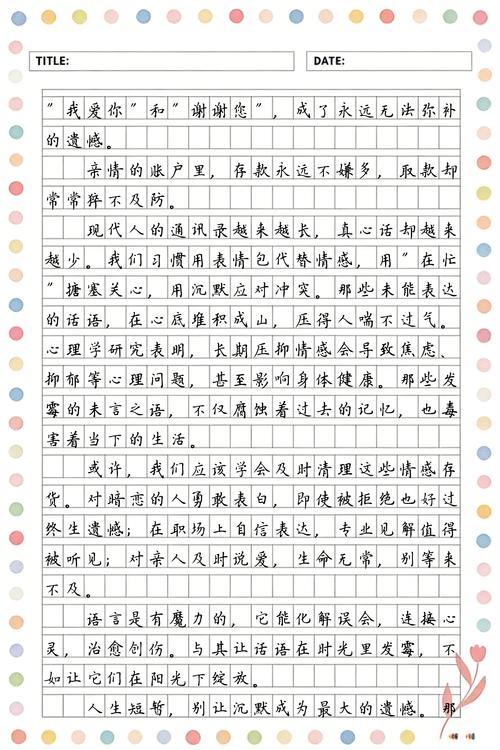 TITLE: DATE:
"我爱你"和"谢谢您",成了永远无法弥补
的遗憾。
亲情的账户里,存款永远不嫌多,取款却
常常猝不及防。
现代人的通讯录越来越长,真心话却越来
越少。我们习惯用表情包代替情感,用"在忙
"搪塞关心,用沉默应对冲突。那些未能表达
的话语,在心底堆积成山,压得人喘不过气。
心理学研究表明,长期压抑情感会导致焦虑、
抑郁等心理问题,甚至影响身体健康。那些发
霉的未言之语,不仅腐蚀着过去的记忆,也毒
害着当下的生活。
或许,我们应该学会及时清理这些情感存
货。对暗恋的人勇敢表白,即使被拒绝也好过
终生遗憾;在职场上自信表达,专业见解值得
被听见;对亲人及时说爱,生命无常,别等来
不及。
语言是有魔力的,它能化解误会,连接心
灵,治愈创伤。与其让话语在时光里发霉,不
如让它们在阳光下绽放。
人生短暂,别让沉默成为最大的遗憾。那